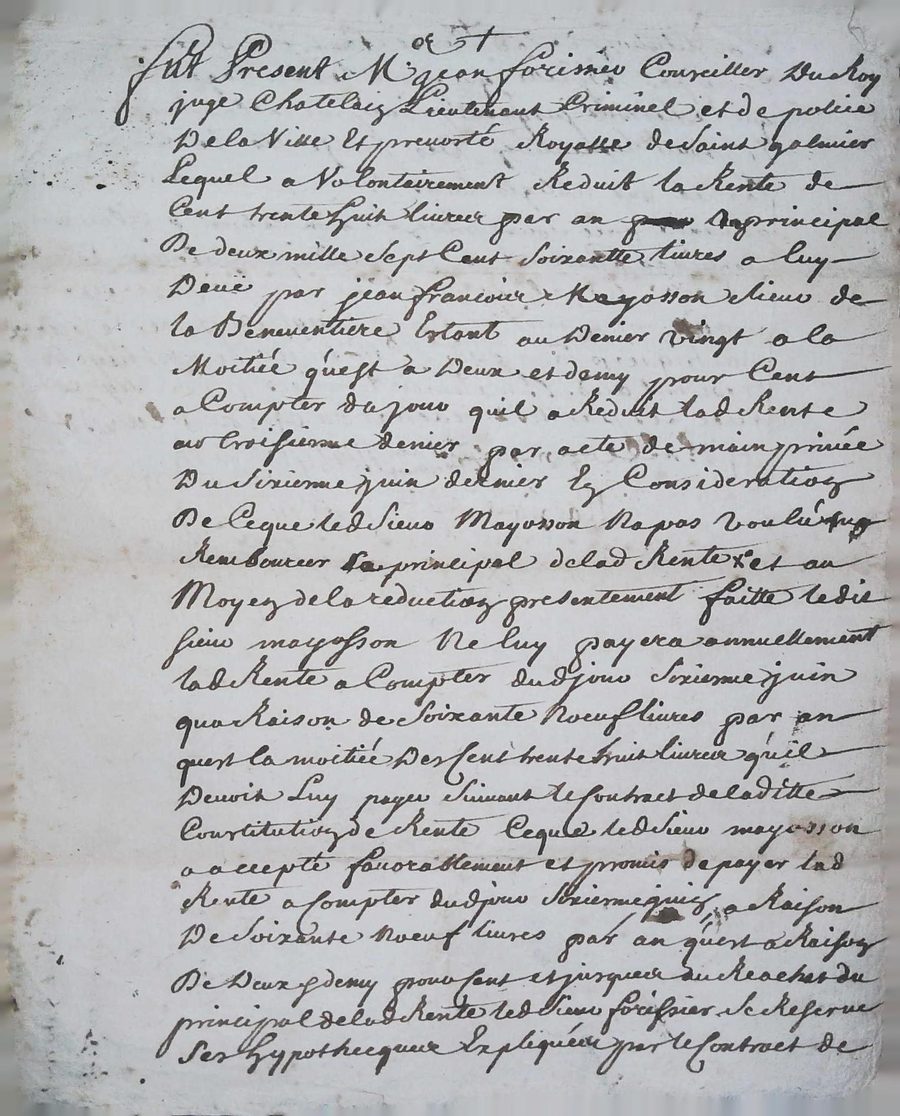 fut Present Mr jean forissier Conseiller Du Roy
juge Chatelain Lieutenant Criminel et de police
De la Ville Et prevorté Royalle de Saint galmier
Lequel a Volontairement Reduit la Rente de
Cent trente huit livres par an principal
De deux mille Sept Cent Soixantte livres a luy
Deüe par jean francois Mayosson Sieur de
la Beneventiere Estant au Denier vingt a la
Moitiée qu'est a Deux et demy pour Cent
a Compter du jour quil a Reduit lad Rente
au troisieme denier par acte de main privée
Du Sixieme juin dernier En Consideration
De Ceque led Sieur Mayosson Na pas voulu
Rembourcer le principal delad Rente et au
Moyen de la reduction presentement faitte ledit
sieur mayosson Ne luy payera annuellement
lad Rente a Compter dud jour Sixieme juin
qua Raison de Soixante Noeuf livres par an
quest la moitiée Des Cent trente huit livres qu'il
Devoit Luy payer Suivant le Contract de laditte
Constitution de Rente Ceque led Sieur mayosson
a accepté favorablement et promis de payer lad
Rente a Compter dud jour Sixieme juin a Raison
De Soixante Noeuf livres par an qu'est a Raison
De Deux & demy pour Cent et jusques au Reachat du
principal delad Rente led Sieur forissier Se Reserve
Ses hypothecques Expliquées par le Contract de